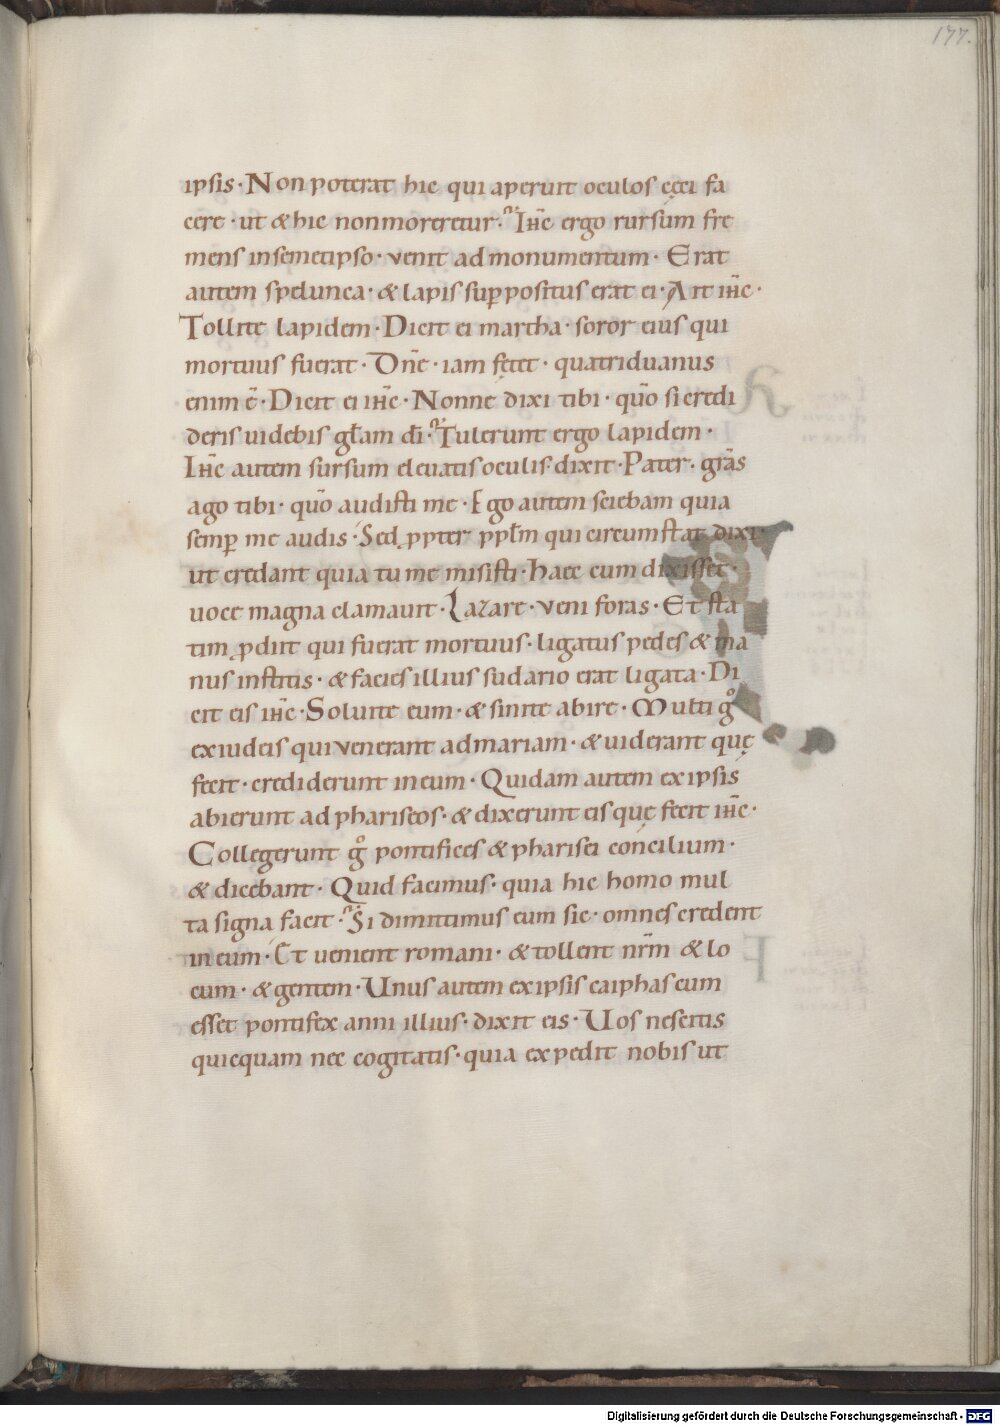 177.
ipsis · Non poterat hic qui aperuit oculos cęci fa
cere · ut & hic non moreretur · Ih̅c ergo rursum fre
mens in semetipso · venit ad monumentum · Erat
autem spelunca · & lapis sup̱positus erat ei · Ait ih̅c ·
Tollite lapidem · Dicit ei martha · soror eius qui
mortuus fuerat · Dn̅e · iam fętet · quatriduanus
enim e̅ · Dicit ei ih̅c · Nonne dixi tibi · quō si credi
deris uidebis gl̅am dī · Tulerunt ergo lapidem ·
Ih̅c autem sursum eleuatis oculis dixit · Pater · grās
ago tibi · quō audisti me · Ego autem sciebam quia
semp̱ me audis · Sed ꝓpter ppl̅m qui circumstat dixi ·
ut credant quia tu me misisti · Haec cum dixisset ·
uoce magna clamauit · Lazare · veni foras · Et sta
tim ꝓdiit qui fuerat mortuus · ligatus pedes & ma
nus institis · & facies illius sudario erat ligata · Di
cit eis ih̅c · Soluite eum · & sinite abire · Multi gͦ
ex iudeis qui venerant ad mariam · & uiderant quę
fecit · crediderunt in eum · Quidam autem ex ipsis
abierunt ad phariseos · & dixerunt eis quę fecit ih̅c ·
Collegerunt gͦ pontifices & pharisei concilium ·
& dicebant · Quid facimus · quia hic homo mul
ta signa facit · Si dimittimus eum sic · omnes credent
in eum · Et venient romani · & tollent nr̅m & lo
cum · & gentem · Unus autem ex ipsis caiphas cum
esset pontifex anni illius · dixit eis · Uos nescitis
quicquam nec cogitatis · quia expedit nobis ut
Digitalisierung gefördert durch die Deutsche Forschungsgemeinschaft - DFG